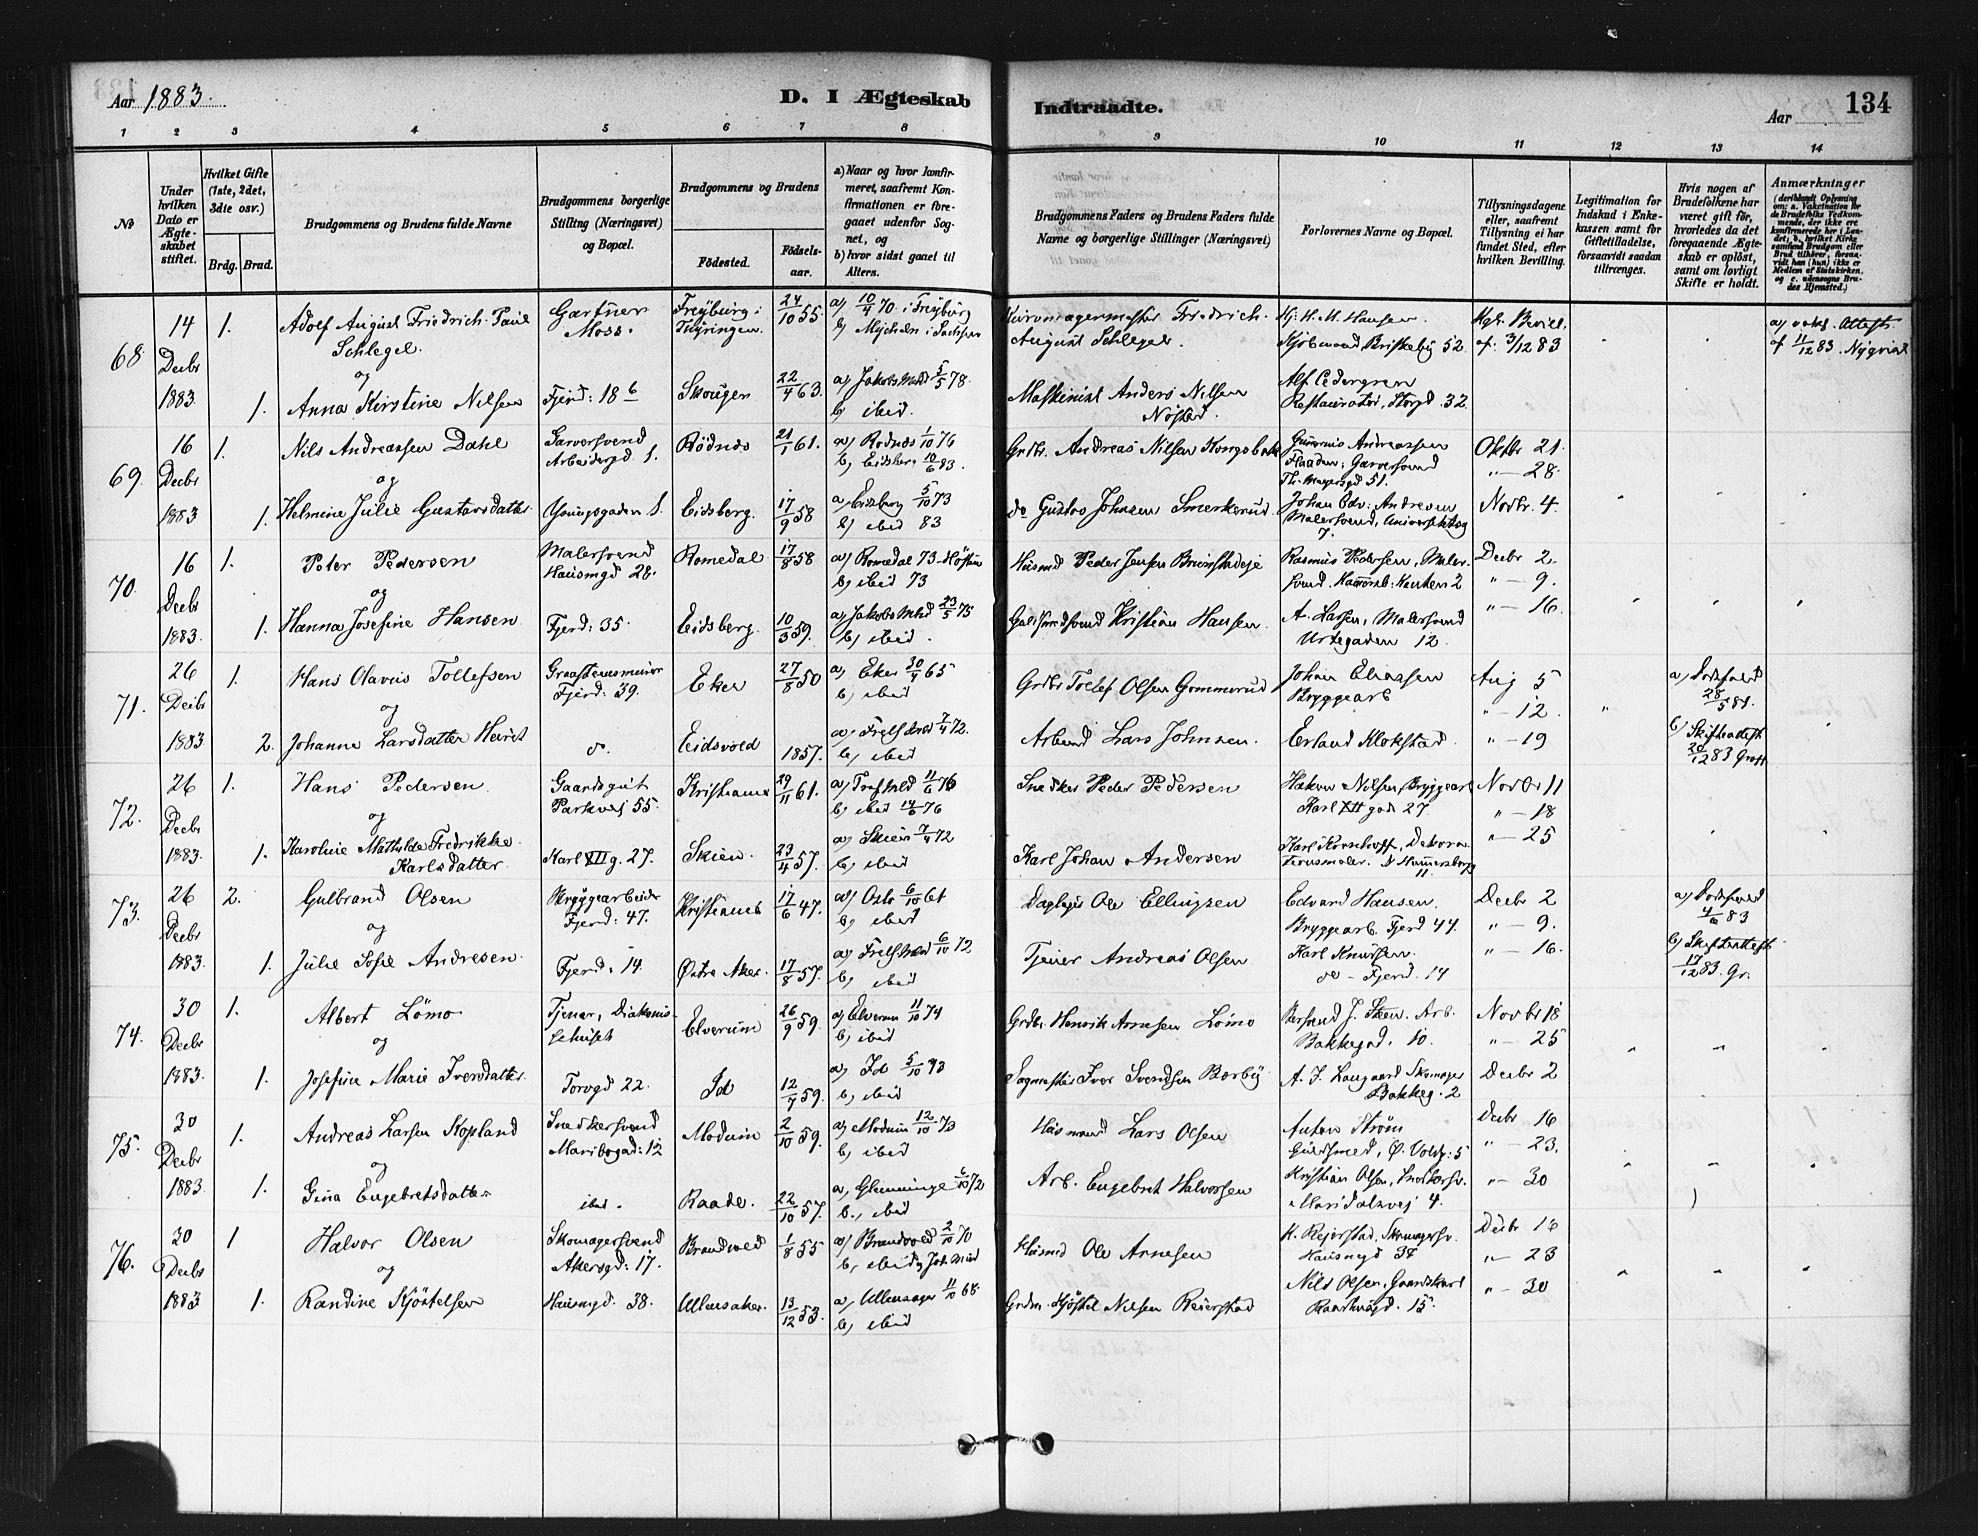 Aar 1883.
D. I Ægteskab Indtraadte.
Aar
134
1 2 3 4 5 6 7 8 9 10 11 12 13 14
No
Under hvilken Dato er Ægteskabet stiftet.
Hvilket Gifte (1ste, 2det, 3die osv.)
Brdg. Brud.
Brudgommens og Brudens fulde Navne
Brudgommens borgerlige Stilling (Næringsvei) og Bopæl.
Brudgommens og Brudens
Födested.
Födsels-aar.
a) Naar og hvor konfirmeret, saafremt Konfirmationen er foregaaet udenfor Sognet, og
b) hvor sidst gaaet til Alters.
Brudgommens Faders og Brudens Faders fulde Navne og borgerlige Stillinger (Næringsvei)
Forlovernes Navne og Bopæl.
Tillysningsdagene eller, saafremt Tillysning ei har fundet Sted, efter hvilken Bevilling.
Legitimation for Indskud i Enkekassen samt for Giftetilladelse, forsaavidt saadan tiltrænges.
Hvis nogen af Brudefolkene har været gift för, hvorledes da det foregaaende Ægteskab er oplöst, samt om lovligt Skifte er holdt.
Anmærkninger
68. 14 Decbr 1883. 1. Adolf August Friedrich Paul Schlegel. Gartner Moss. Freyburg i Thyringen 24/10 55. a) 10/4 70 i Freyburg b) i Sachsen
August Schlegel. Kj. H. M. Hansen. Kjöbmand, Briskeby 52. Kgl. Bevill. af 3/12 83
og
1. Anna Kirstine Nilsen Fjerd: 18 b Skouger 22/4 63. a) Jakobs Mhd 5/5 78. b) ibid.
Maskinist Anders Nilsen Nøsted. Alf Cedergren Restauratør, Storgd. 32.
69. 16 Decbr 1883 1. Nils Andreassen Dahl Garversvend Arbeidergd. 1. Rödnæs 21/1 61. a) Rödnæs 1/10 76 b) 10/6 83.
Grdbr. Andreas Nilsen Andreassen Garversvend Th. Meyersgd 51. Oktbr 21. " 28.
og
1. Helmine Julie Gustavsdatter Eidsberg. 17/9 58 a) Eidsberg 5/10 73 b) ibid 83
do Gustav Johnsen Smerkerud. Johan Edv: Andresen Malersvend, Universitetsg 7. Novbr. 4.
70. 16 Decbr 1883. 1. Peter Pedersen Malersvend Hausmgd 28. Romedal 17/8 58 a) Romedal 73 Høsten b) ibid 73
Husmd Peder Jensen Rasmus Pedersen, Malersvend. Decbr 2. " 9.
og
1. Hanna Josefine Hansen Fjerd: 35. Eidsberg. 10/3 59. a) Jakobs Mhd 23/5 75 b) ibid.
Guldsmedsvend Kristian Hansen. A. Larsen, Malersvend Urtegaden 12. " 16.
71. 26 Decbr 1883 1. Hans Olavus Tollefsen Graastensmurer Fjerd: 39. Eker 27/8 50 a) Eker 30/4 65 b) ibid
Grdbr Tollef Olsen Gommerud Johan Eliassen Bryggearb Aug 5 " 12. a) Dödsfald 28/5 81.
og
2. Johanne Larsdatter do. Eidsvold 1857. a) Frelserens 7/4 72. b) ibid
Arbmd Lars Johnsen. Erland Klokstad. " 19 b) Skifteattest 20/12 83
72. 26 Decbr 1883. 1. Hans Pedersen Gaardsgut Parkvej 55. Kristiania 29/11 61. a) Trefhd 11/6 76 b) ibid 14/6 76
Snedker Peder Pedersen Haken Nilsen Bryggearb Karl XII gad 27. Novbr 11 " 18
og
1. Karoline Mathilde Fredrikke Karlsdatter. Karl XII g. 27. Skien. 23/4 57. a) Skien 7/4 72 b) ibid
Karl Johan Andersen Dekorationsmaler. N Hammersborg 11. " 25
73. 26 Decbr 1883. 2. Gulbrand Olsen Bryggearbeider Fjerd: 47. Kristiania 17/6 47. a) Oslo 6/10 61 b) ibid
Daglejer Ole Ellingsen Edvard Hansen. Bryggearb. Fjerd 44. Decbr 2 " 9. a) Dödsfald 4/6 83
og
1. Julie Sofie Andresen. Fjerd: 14. Østre Aker. 17/8 57. a) 6/10 72 b) ibid
Tjener Andreas Olsen Karl Knudsen. do - Fjerd. 14 " 16. b) Skifteattest 17/12 83. Gr.
74. 30 Decbr 1883. 1. Albert Lömo Tjener, Diakonissehuset Elverum 26/9 59. a) Elverum 11/10 74 b) ibid
Grdbr. Henrik Arnesen Lömo Arb. Bakkegad. 10. Novbr 18 " 25
og
1. Josefine Marie Iversdatter. Torvgd 22. Id 12/7 59. a) Id 5/10 73 b) ibid
Sagmester Iver Svendsen Berby. A. J. Langaard Skomager Bakkeg. 2 Decbr 2
75. 30 Decbr 1883 1. Andreas Larsen Kopland Snedkersvend Maribogad: 12 Modum 2/10 59. a) Modum 12/10 73 b) ibid
Husmand Lars Olsen Anton Ström Guldsmed, Ø. Voldg: 5 Decbr 16 " 23.
og
1. Gina Engebretsdatter ibid. Raade. 22/10 57. a) Glemminge 6/10 72 b) ibid
Arb. Engebret Halvorsen Kristian Olsen, Snedkersv. Maridalsvej 4. " 30
76. 30 Decbr 1883 1 Halvor Olsen Skomagersvend Akersgd: 17. Brandvold 1/8 55 a) Brandvold 2/10 70 b) ibid
Husmd Ole Arnesen K. Rejerstad, Skomagersv. Hausmgd 38 Decbr 16 " 23
og
1. Randine Kjöstelsen Hausmgd. 38. Ullensaker. 13/12 53. a) Ullensager 11/10 68. b) ibid
Grdm. Kjöstel Nilsen Reierstad Nils Olsen, Gaardskarl 15. " 30